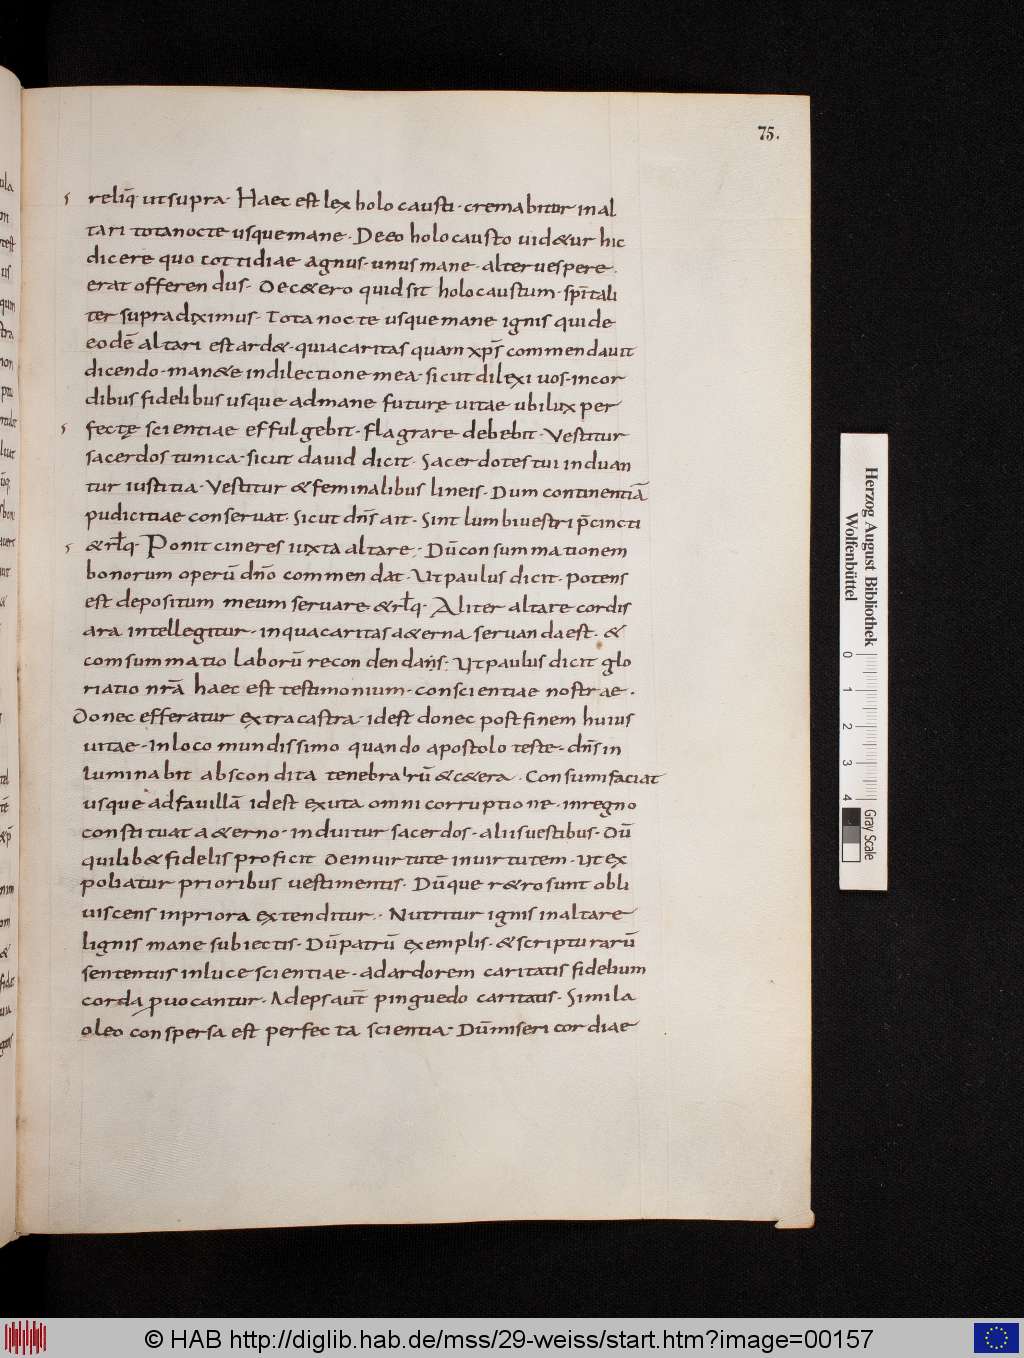 75.
reliq̄ ut supra· Haec est lex holocausti· cremabitur in al
tari tota nocte usque mane· De eo holocausto uid&ur hic
dicere quo cottidiae agnus· unus mane· alter uespere·
erat offerendus· De c&ero quid sit holocaustum· sp̄itali
ter supra diximus· Tota nocte usque mane ignis qui de
eodē altari est ard&· quia caritas quam xp̄s commendauit
dicendo· man&e in dilectione mea· sicut dilexi uos· in cor
dibus fidelibus usque ad mane futurę uitae ubi lux per
fectę scientiae effulgebit· flagrare debebit· Vestitur
sacerdos tunica· sicut dauid dicit· Sacerdotes tui induan
tur iustitia· Vestitur & feminalibus lineis· Dum continentiā
pudicitiae conseruat· Sicut dn̄s ait· Sint lumbi uestri p̄cincti
& rl̄q· Ponit cineres iuxta altare· Dū consummationem
bonorum operū dn̄o commendat· Ut paulus dicit· potens
est depositum meum seruare & rl̄q· Aliter altare cordis
ara intellegitur· in qua caritas a&erna seruanda est· &
comsummatio laborū recondendans· Ut paulus dicit glo
riatio nr̄a haec est testimonium· conscientiae nostrae·
Donec efferatur extra castra· idest donec post finem huius
uitae· In loco mundissimo quando apostolo teste· dn̄s in
luminabit abscondita tenebrarū & c&era· Consumi faciat
usque ad fauillā idest exuta omni corruptione· in regno
constituat a&erno· induitur sacerdos· aliis uestibus· Dū
quilib& fidelis proficit de in uirtute in uirtutem· Ut ex
poliatur prioribus uestimentis· Dūque r&ro sunt obli
uiscens in priora extenditur· Nutritur ignis in altare
lignis mane subiectis· Dū patrū exemplis· & scripturarū
sententiis in luce scientiae· ad ardorem caritatis fidelium
corda puocantur· Adeps aut̄ pinguedo caritatis· Simila
oleo conspersa est perfecta scientia· Dū miseri cordiae
Herzog August Bibliothek
Wolfenbüttel
0 1 2 3 4
Gray Scale
© HAB http://diglib.hab.de/mss/29-weiss/start.htm?image=00157